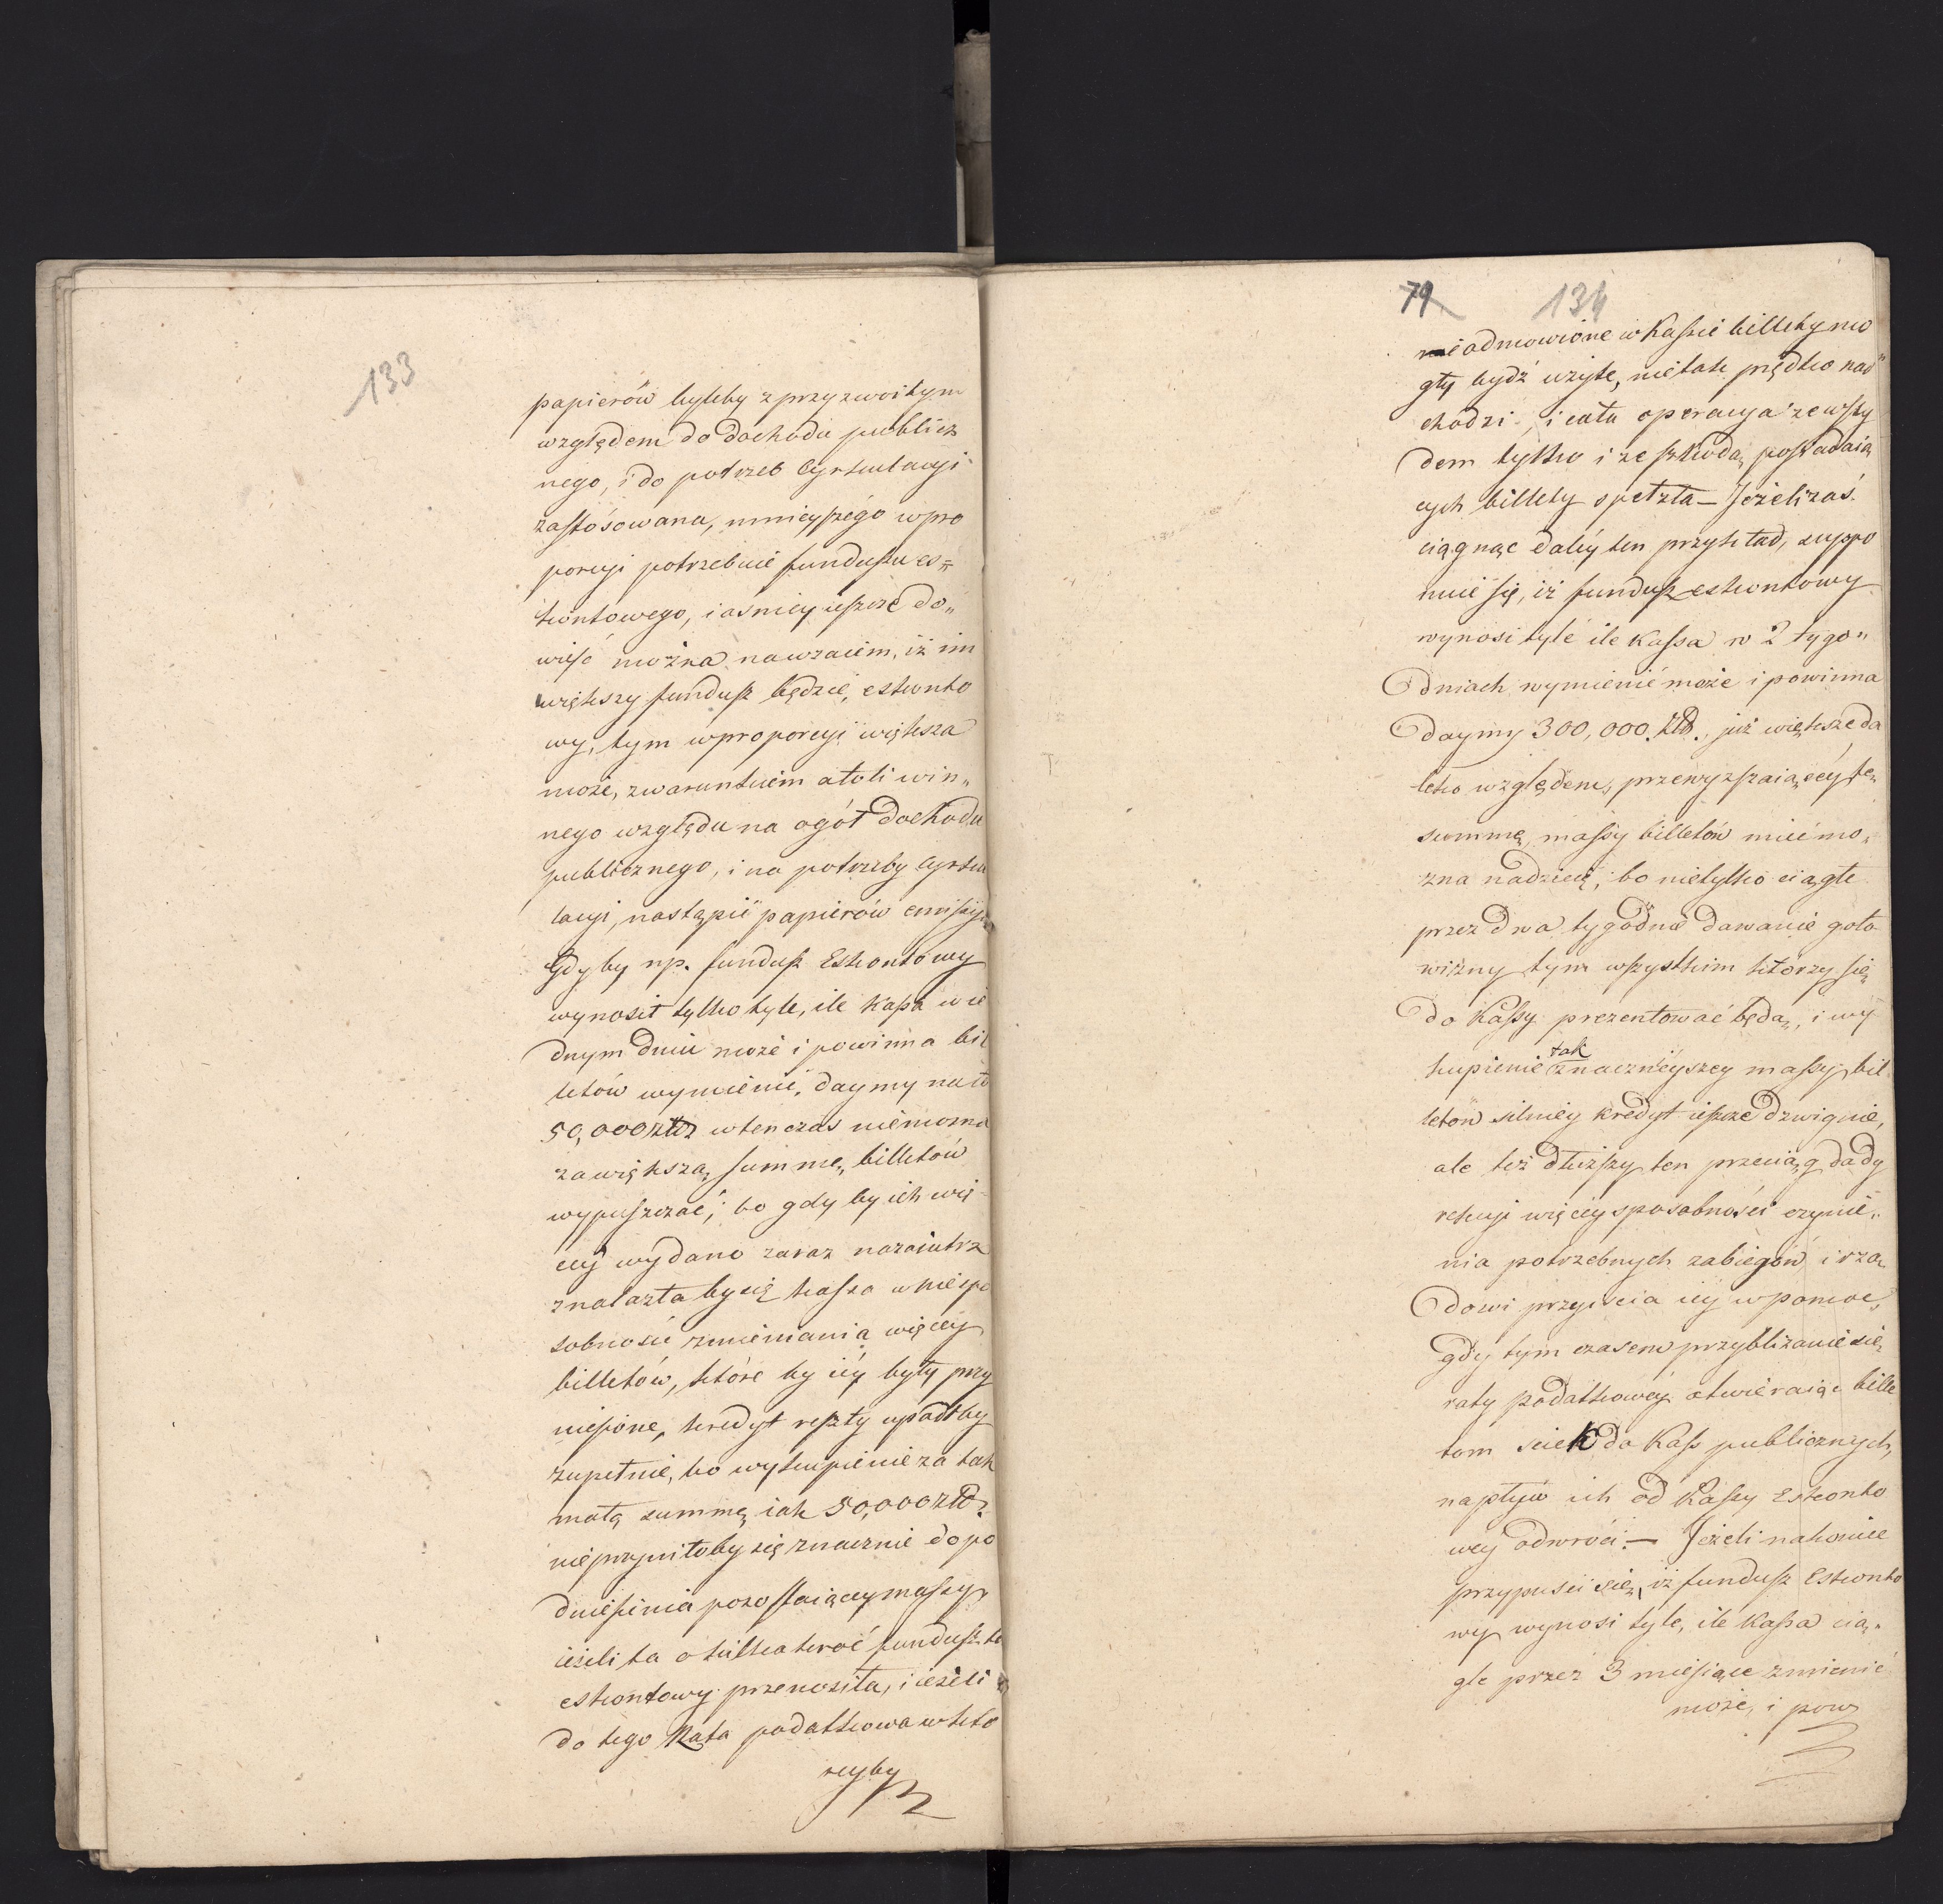 133
papierów byleby z przyzwoitym
względem do dochodu publicz
nego, i do potrzeb Cyrkulacyi
zastósowana, mnieyszégo w pro
porcyi potrzebuie funduszu es„
kontowego, iasniey ieszcze do„
wieść można nawzaiem, iż im
większy fundusz będzie, eskonto
wy, tym w proporcyi większa
może, z warunkiem atoli win„
nego względu na ogół dochodu
publicznego, i na potrzeby Cyrku
lacyi, nastąpić papierów emissya
Gdyby np. fundusz Eskontowy
wynosił tylko tyle, ile Kassa w ie
dnym dniu może i powinna bil
letów wymienić, daymy na to
50,000 złł wtenczas niemożna
za większą summę billetów
wypuszczać, bo gdy by ich wię
cey wydano zaraz nazaiutrz
znalazła by się kassa w niespo
sobności zmieniania więcey
billetów, które by iéy były przy
niesione, kredyt reszty upadłby
zupełnie, bo wykupienie za tak
małą summę iak 50,000 złł
nieprzyniłoby się znacznie do po
dniesienia pozostaiącey massy,
ieżeli ta o kilkakroć fundusz te
eskontowy przenosiła, i ieżeli
do tego Rata podatkowa w któ
reyby
79 134
nie odmowione w Kassie billety mo
gły bydź użyte, nie tak prędko nad„
chodzi i cała operacya ze wsty
dem tylko i ze szkodą posiadaią
cych billety spełzła — Jeżeli zaś
ciągnąc daléy ten przykład, suppo
nuie się, iż fundusz eskontowy
wynosi tyle ile Kassa w 2 tygo„
dniach wymienić może i powinna
daymy 300,000 złł., już większe da
leko względem, przewyzszaiącéy tę
summę, massy billetów mieć mo„
zna nadzieię, bo nietylko ciągłe
przez dwa tygodnie dawanie goto
wizny tym wszystkim którzy się
do Kassy prezentować będą, i wy
kupienie tak znacznieyszey massy bil
letów silniey kredyt ieszcze dzwignie,
ale też dłuższy ten przeciąg da dy
rekcyi więcey sposobności czynie„
nia potrzebnych zabiegów i rzą
dowi przyiścia iéy w pomoc,
gdy tym czasem przybliżanie się
raty podatkowéy otwieraiąc bille
tom sciek do Kass publicznych,
napływ ich od Kassy Eskonto
wey odwróci. — Jeżeli nakoniec
przypuści się, iż fundusz Eskonto
wy wynosi tyle, ile Kassa cią„
gle przez 3 miesiące zmienić
może, i pow